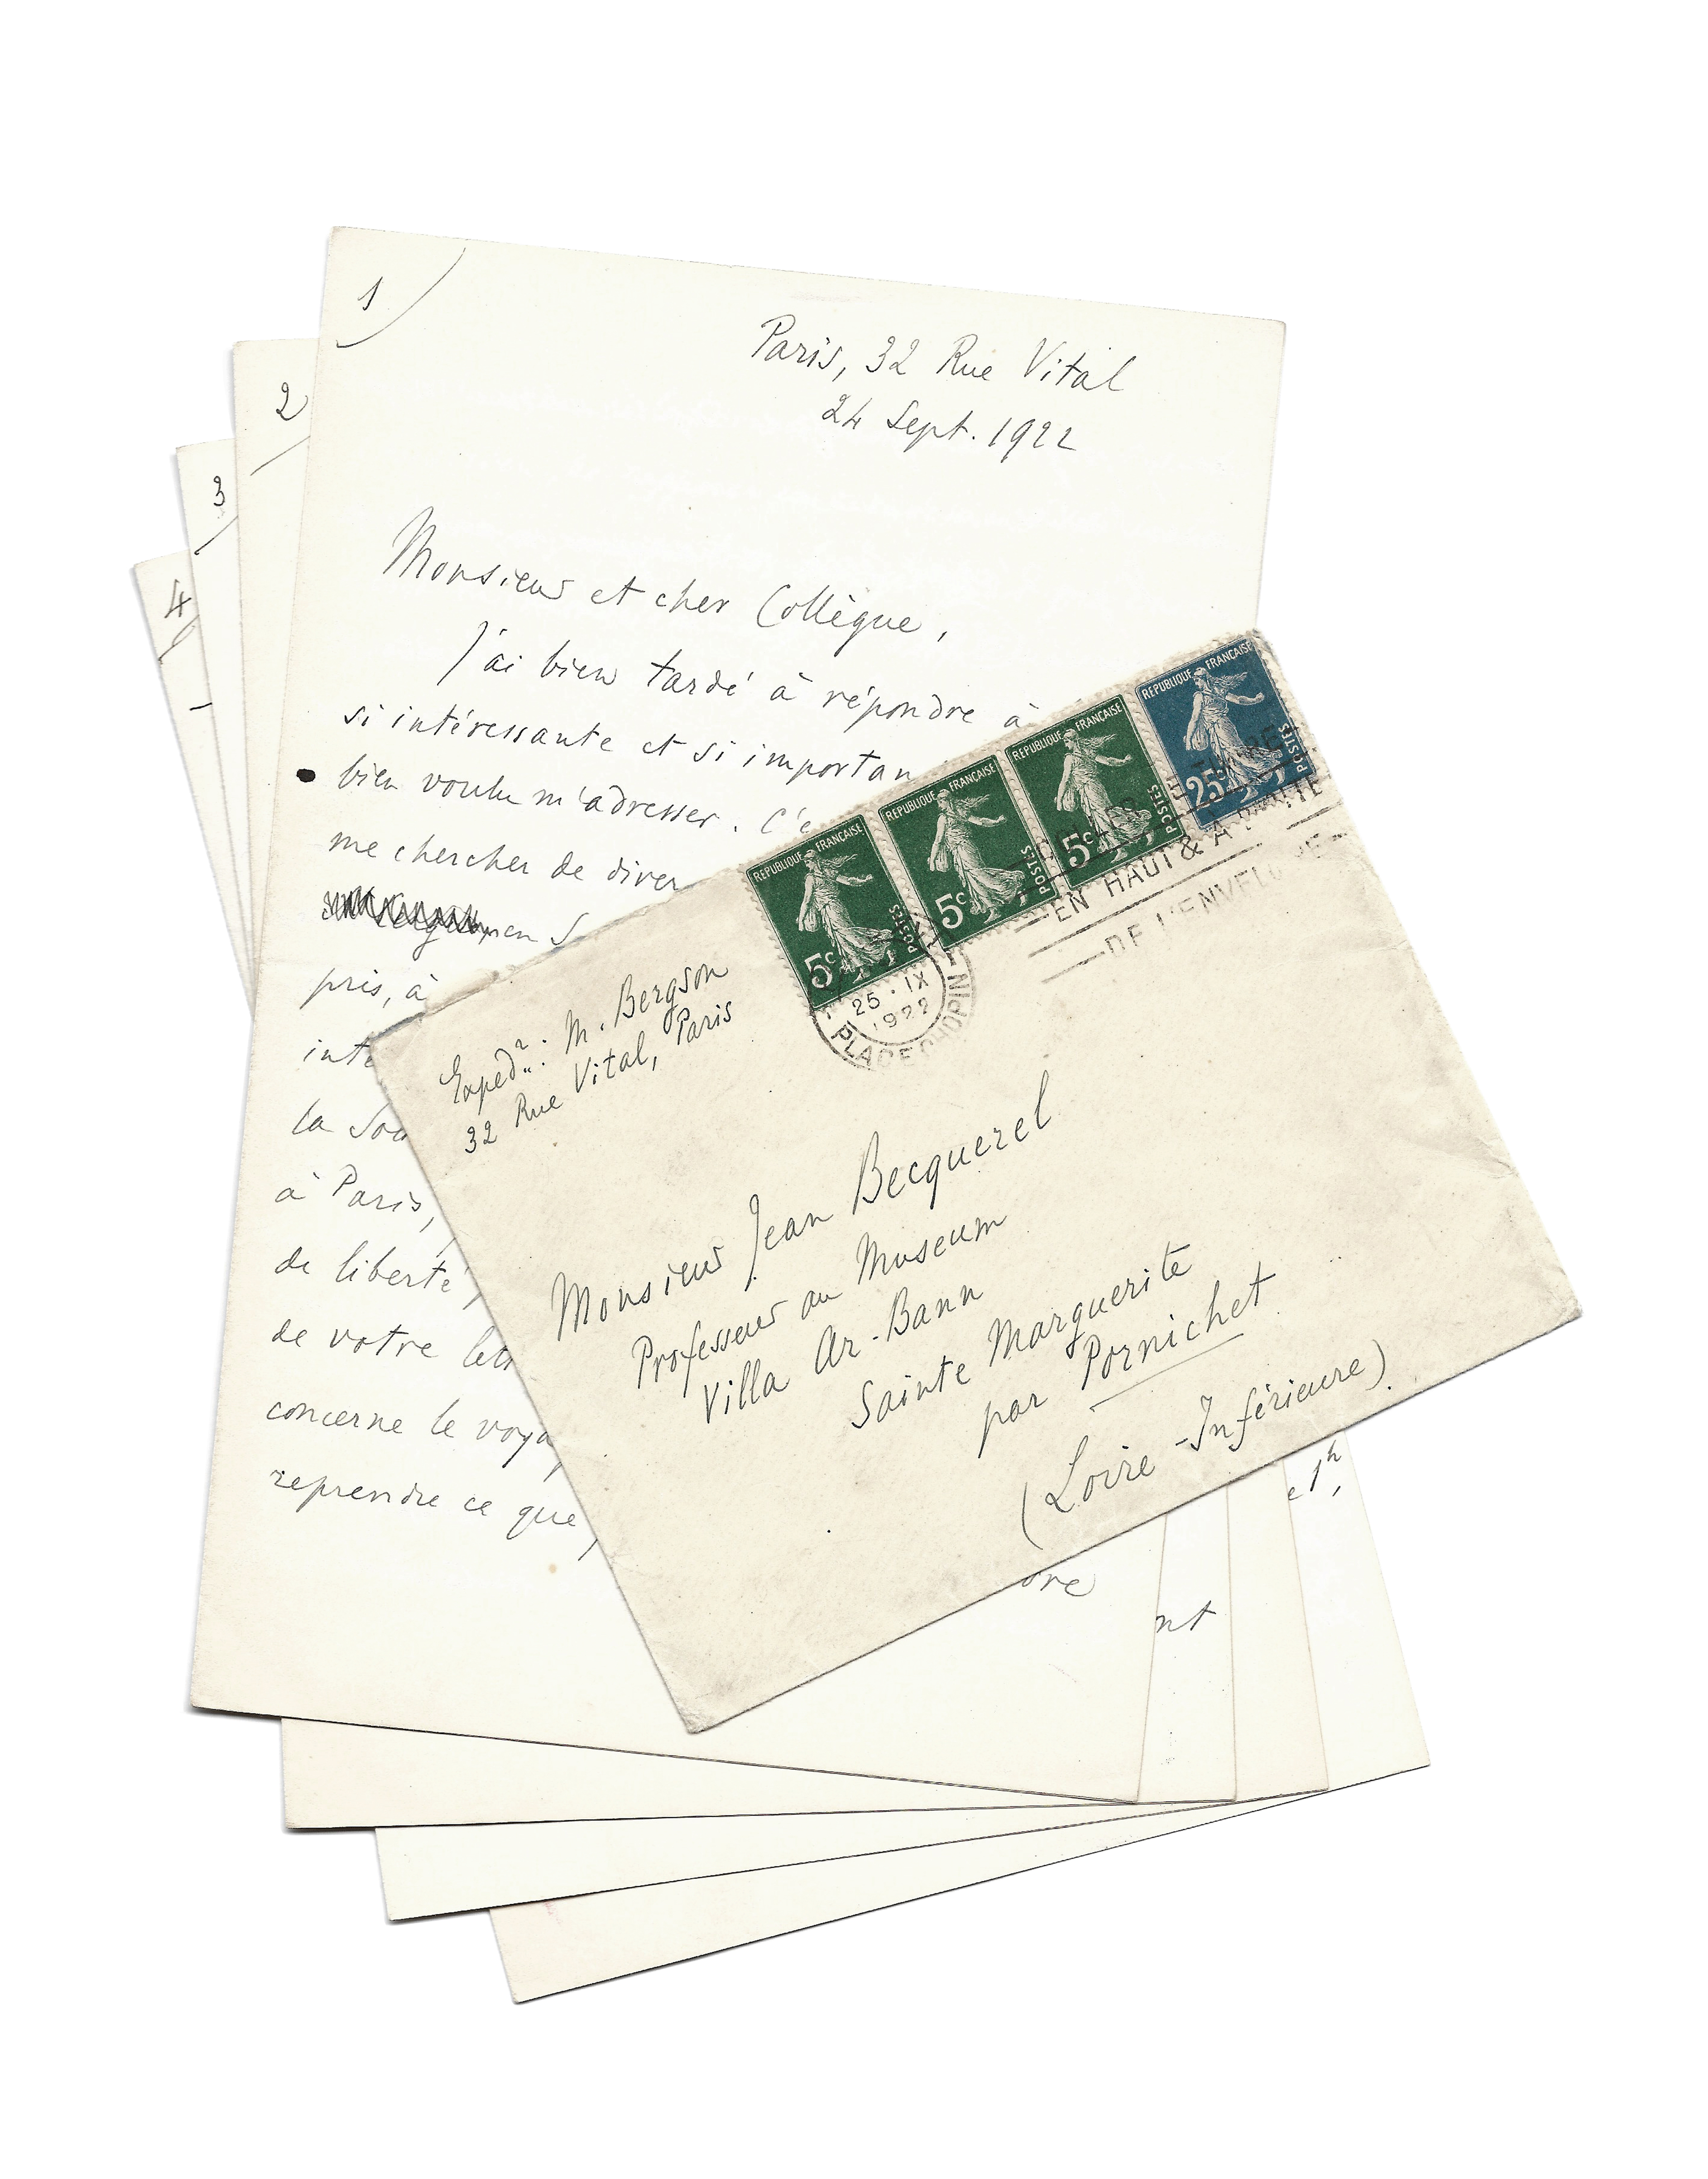 1
Paris, 32 Rue Vital
24 Sept. 1922
Monsieur et cher Collègue,
J'ai bien tardé à répondre à
si intéressante et si importan
bien voulu m'adresser. C'e
me chercher de diver
en S
pris, à
inte
la Sou
à Paris,
de liberté
de votre lett
concerne le voya
reprendre ce que,
dre
2
3
4
nt
e 1h,
REPUBLIQUE FRANÇAISE
POSTES
5c
REPUBLIQUE FRANÇAISE
POSTES
5c
REPUBLIQUE FRANÇAISE
POSTES
5c
REPUBLIQUE FRANÇAISE
POSTES
25c
25 · IX
1922
PLACE CHOPIN
EN HAUT & À DROITE
DE L'ENVELOPPE
Expedr: M. Bergson
32 Rue Vital, Paris
Monsieur Jean Becquerel
Professeur au Museum
Villa Ar-Bann
Sainte Marguerite
par Pornichet
(Loire-Inférieure)